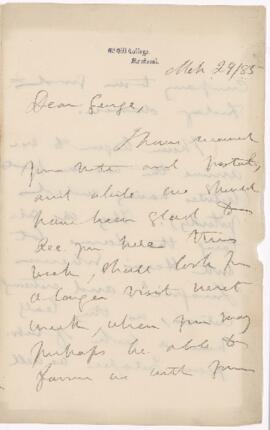 McGill College,
Montreal.
Mch 29/85
Dear George,
I have received
your note and postal,
and while we should
have been glad to
see you here this
week, shall look for
a longer visit next
week, when you may
perhaps be able to
favour us with your